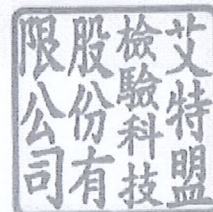 艾特盟
檢驗科技
股份有
限公司